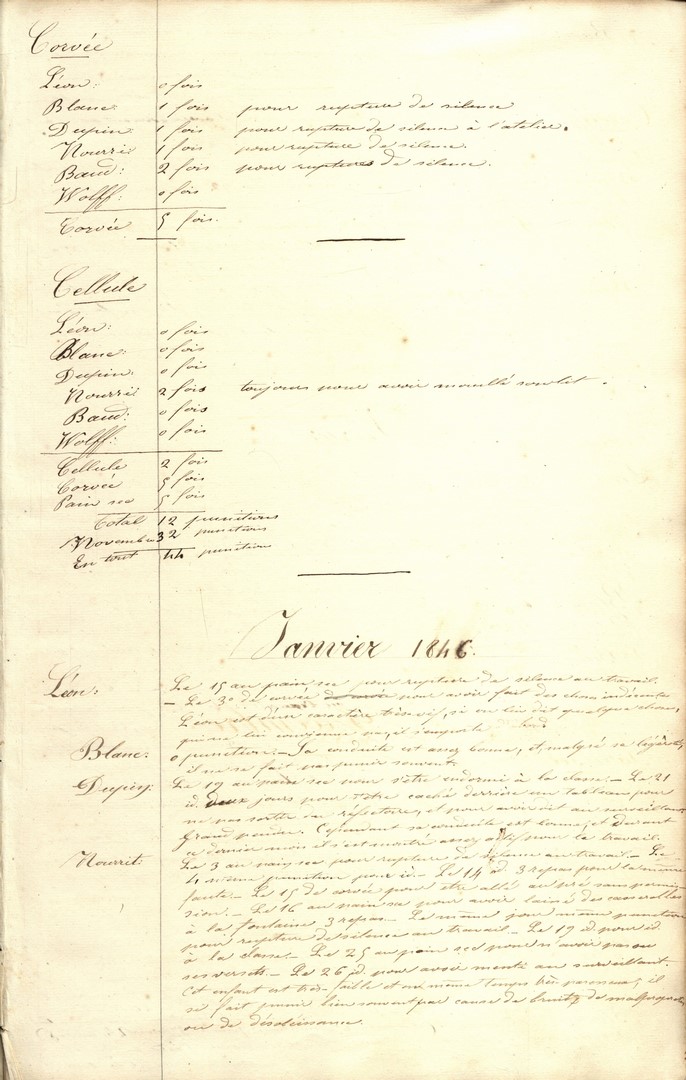 Corvée
Léon: 0 fois
Blanc: 1 fois pour rupture de silence
Dupin: 1 fois pour rupture de silence à l'atelier.
Nourri: 1 fois pour rupture de silence.
Baud: 2 fois pour rupture de silence.
Wolff: 0 fois
Corvée 5 fois.
Cellule
Léon: 0 fois
Blanc: 0 fois
Dupin: 0 fois
Nourri: 2 fois toujours pour avoir mouillé son lit.
Baud: 0 fois
Wolff: 0 fois
Cellule 2 fois
Corvée 5 fois
Pain sec 5 fois
Total 12 punitions
Novembre 32 punitions
En tout 44 punitions
Janvier 1846.
Léon: Le 15 au pain sec pour rupture de silence au travail.
– Le 30 de corvée pour avoir fait des choses indécentes
Léon est d'un caractère très vif, si on lui dit quelque chose,
qui ne lui convienne pas, il s'emporte
Blanc: 0 punition. – Sa conduite est assez bonne, et, malgré sa légèreté,
il ne se fait pas punir souvent.
Dupin: Le 19 au pain sec pour s'être endormi à la classe. – Le 21
id. deux jours pour s'être caché derrière un tableau pour
ne pas sortir du réfectoire, et pour avoir dit au surveillant
Grand pendu. Cependant sa conduite est bonne, et durant
ce dernier mois il s'est montré assez actif pour le travail.
Nourrit: Le 3 au pain sec pour rupture de silence au travail. – Le
4 même punition pour id. – Le 14 id. 3 repas pour la même
faute. – Le 15 de corvée pour être allé au pré sans permis-
sion. – Le 16 au pain sec pour avoir laissé des casseroles
à la fontaine 3 repas. – Le même jour même punition
pour rupture de silence au travail. – Le 19 id. pour id.
à la classe. – Le 25 au pain sec pour n'avoir pas su
ses versets. – Le 26 id. pour avoir menti au surveillant.
Cet enfant est très faible et en même temps très paresseux, il
se fait punir bien souvent par cause de bruit, de malpropreté
ou de désobéissance.